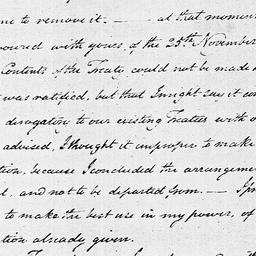 me to remove it. — — at that moment
oured with yours of the 25th November
Contents of the Treaty could not be made
was ratified, but that I might say it con
derogation to our existing Treaties with o
advised, I thought it improper to make
tion, because I concluded the arrangeme
l, and not to be departed from. —
to make the best use in my power, of
tion already given.